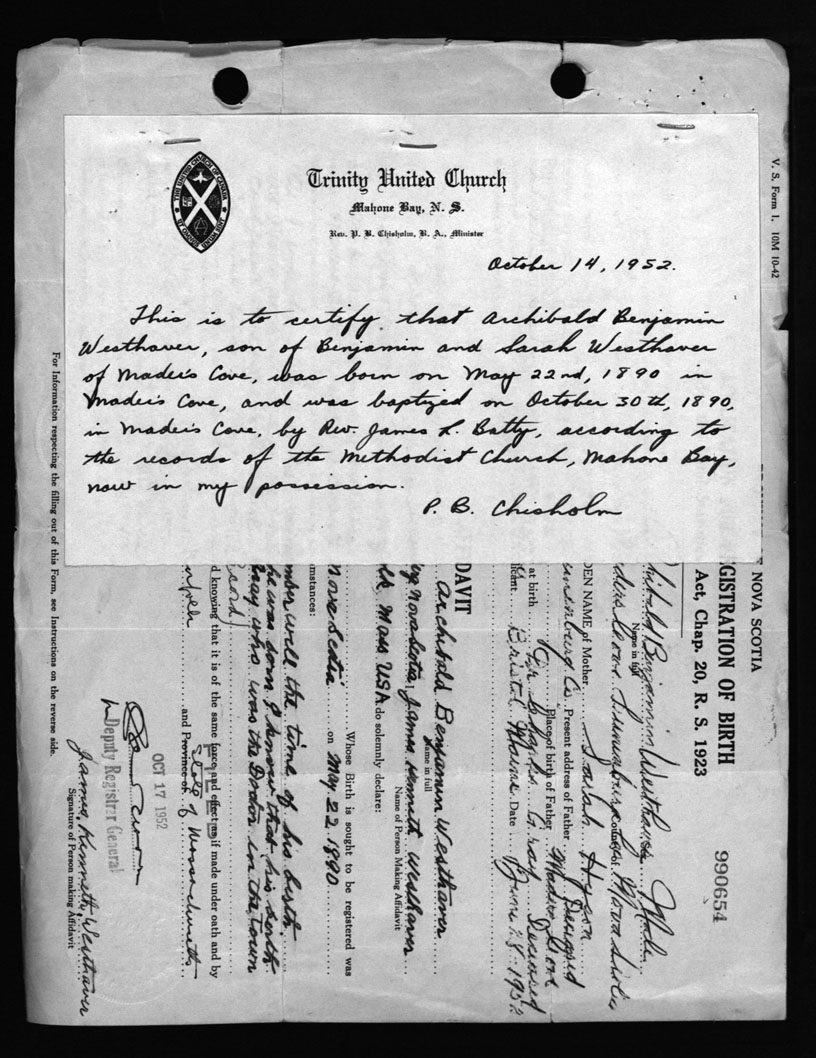 Trinity United Church
Mahone Bay, N. S.
Rev. P. B. Chisholm, B. A., Minister
THE UNITED CHURCH OF CANADA
UT OMNES UNUM SINT
October 14, 1952.
This is to certify that Archibald Benjamin
Westhaver, son of Benjamin and Sarah Westhaver
of Mader's Cove, was born on May 22nd, 1890 in
Mader's Cove, and was baptized on October 30th, 1890,
in Mader's Cove, by Rev. James L. Batty, according to
the records of the Methodist Church, Mahone Bay,
now in my possession.
P. B. Chisholm
V. S. Form 1. 10M 10-42
NOVA SCOTIA
GISTRATION OF BIRTH
Act, Chap. 20, R. S. 1923
990654
hibald Benjamin Westhaver Male
Name in full
Nova Scotia
DEN NAME of Mother Sarah
Present address of Father Deceased
Place of birth of Father Maders Cove
at birth Deceased
Bristol Maine Date June 28 1952
DAVIT
Archibald Benjamin Westhaver
Name in full
Nova Scotia, James Kenneth Westhaver
Name of Person Making Affidavit
Mass USA do solemnly declare:
Whose Birth is sought to be registered was
Nova Scotia on May 22 1890
mstances:
mber well the time of his birth.
he was born I know that his birth
who was the Doctor in the town
d knowing that it is of the same force and effect as if made under oath and by
FILED
and Province of State of Massachusetts
OCT 17 1952
Deputy Registrar General
James Kenneth Westhaver
Signature of Person making Affidavit
For Information respecting the filling out of this Form, see Instructions on the reverse side.